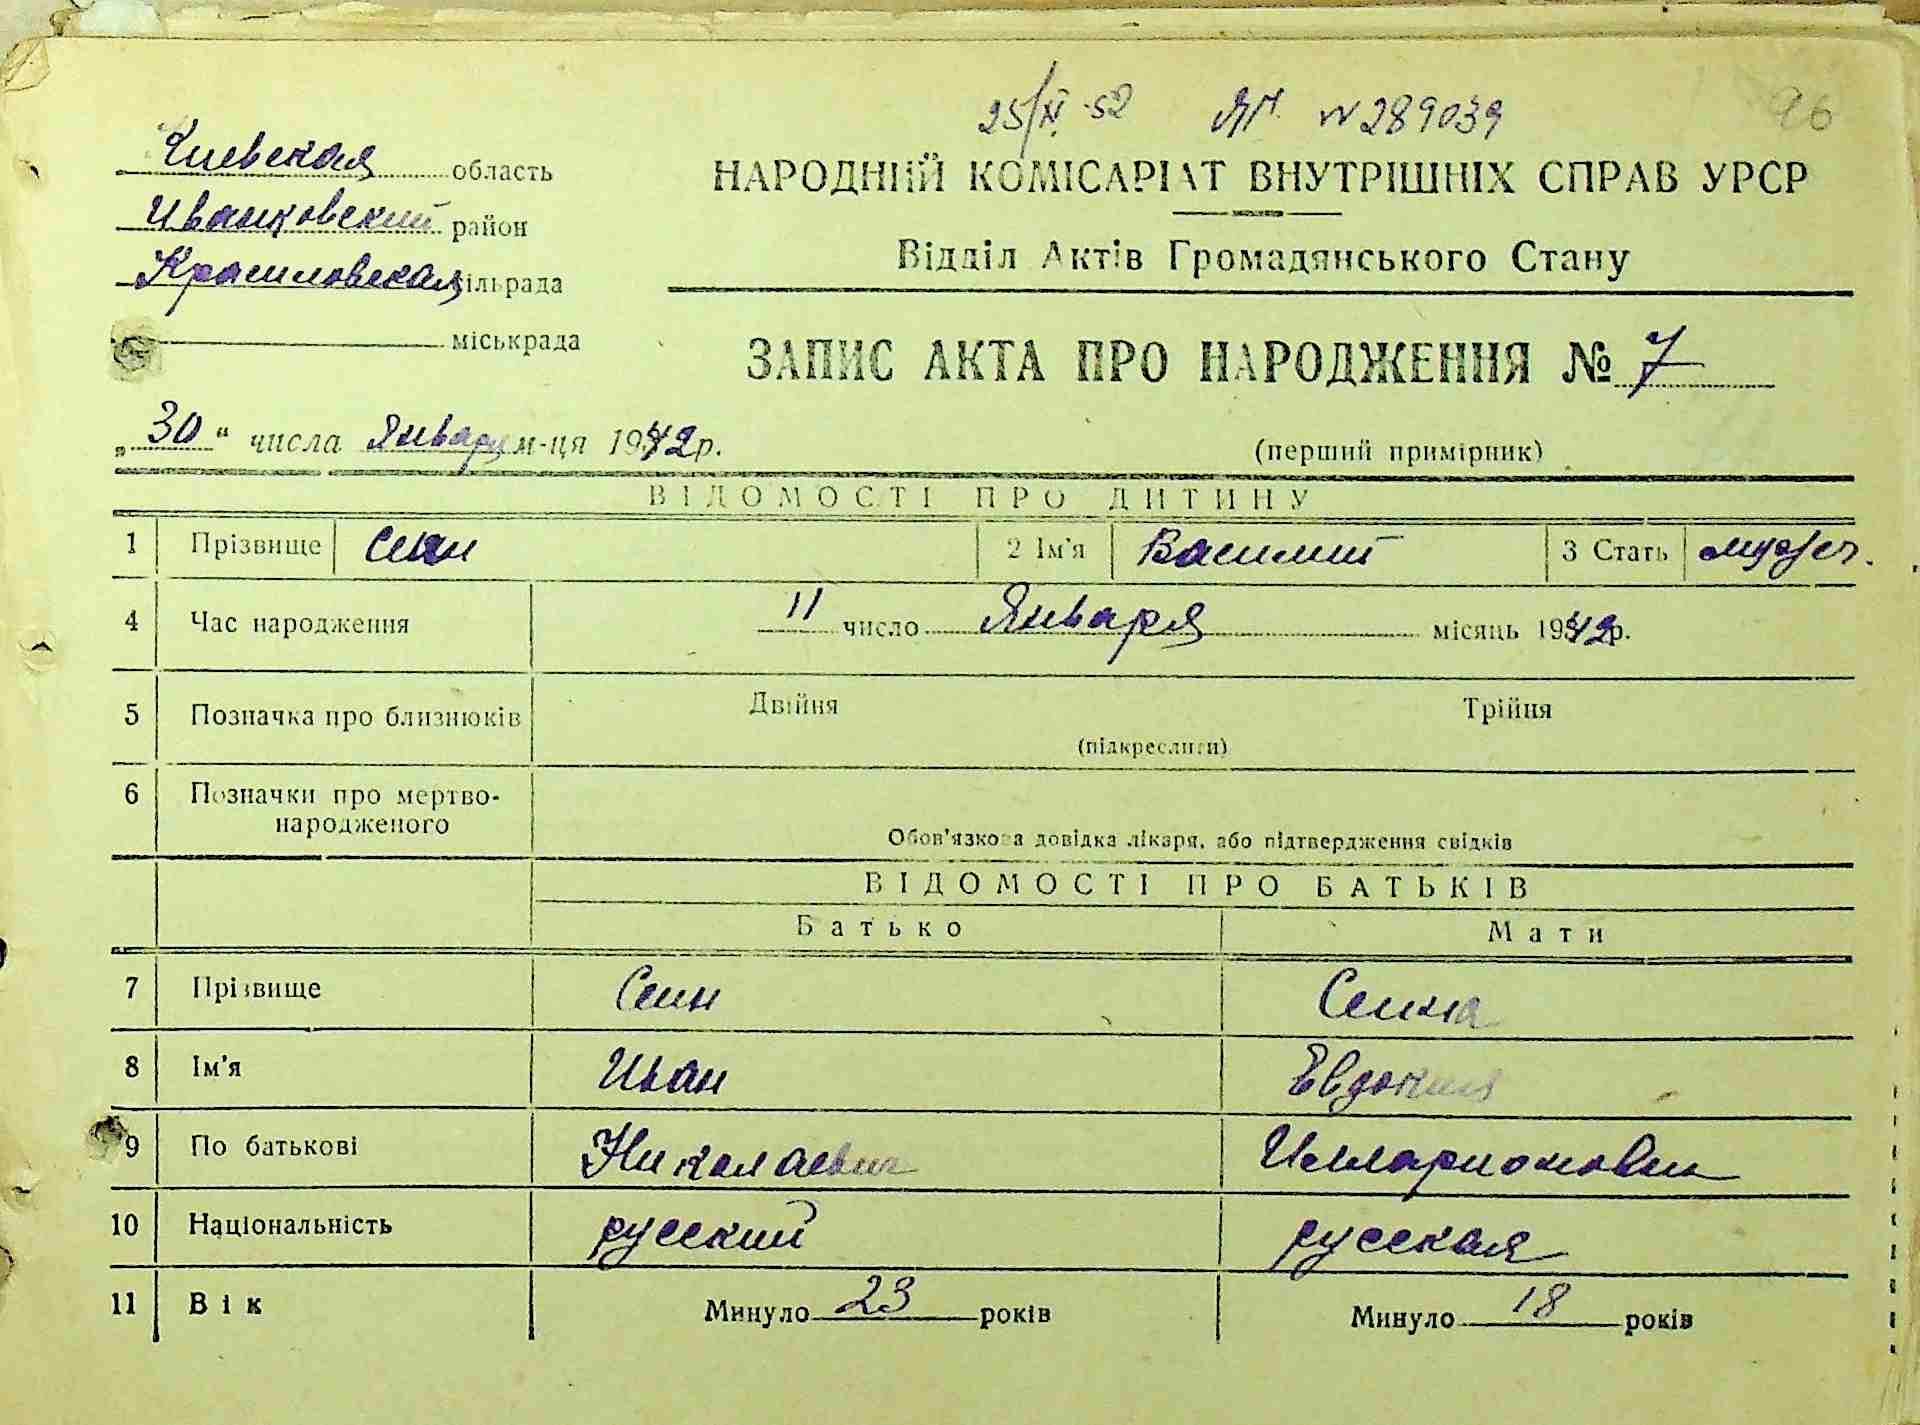 25/XI 52 ЯП. N 289039 96
Киевская область
Иванковский район
Красиловская сільрада
міськрада
НАРОДНИЙ КОМІСАРІАТ ВНУТРІШНІХ СПРАВ УРСР
Відділ Актів Громадянського Стану
ЗАПИС АКТА ПРО НАРОДЖЕННЯ № 7
„30“ числа Января м-ця 1942 р.
(перший примірник)
ВІДОМОСТІ ПРО ДИТИНУ
1 Прізвище Сеин 2 Ім'я Василий 3 Стать мужеч.
4 Час народження 11 число Января місяць 1942 р.
5 Позначка про близнюків Двійня Трійня
(підкреслити)
6 Позначки про мертво-
народженого
Обов'язкова довідка лікаря, або підтвердження свідків
ВІДОМОСТІ ПРО БАТЬКІВ
Батько Мати
7 Прізвище Сеин Сеина
8 Ім'я Иван Евдокия
9 По батькові Николаевич Илларионовн
10 Національність русский русская
11 Вік Минуло 23 років Минуло 18 років